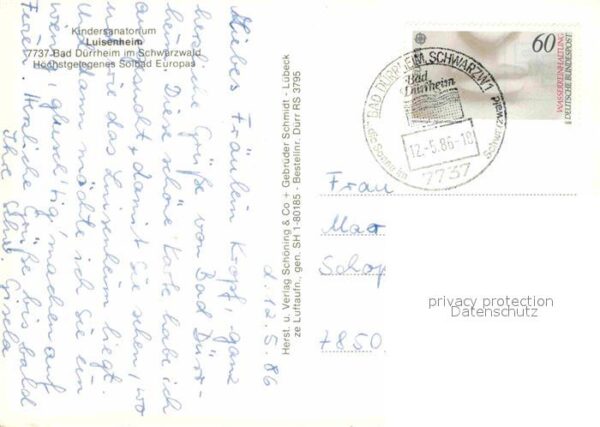 Kindersanatorium
Luisenheim
7737 Bad Dürrheim im Schwarzwald
Höchstgelegenes Solbad Europas
d. 12. 5. 86
Liebes Fräulein Kropf, ganz
herzliche Grüße von Bad Dürr-
heim. Diese schöne Karte habe ich
ausgesucht, damit Sie sehen, wo
und wie das Luisenheim liegt.
Und dann möchte ich Sie ein
wenig "gluschtig" machen auf
Ferien. Herzliche Grüße bis bald
Ihre Schw. Gisela
Herst. u. Verlag Schöning & Co + Gebrüder Schmidt - Lübeck
ze Luftaufn., gen. SH 1-80185 - Bestellnr. Dürr RS 3795
60
WASSERREINHALTUNG
DEUTSCHE BUNDESPOST
BAD DÜRRHEIM, SCHWARZW 1
Bad
Dürrheim
12.-5.86-18
7737
Frau
Mar
Schop
7850
privacy protection
Datenschutz